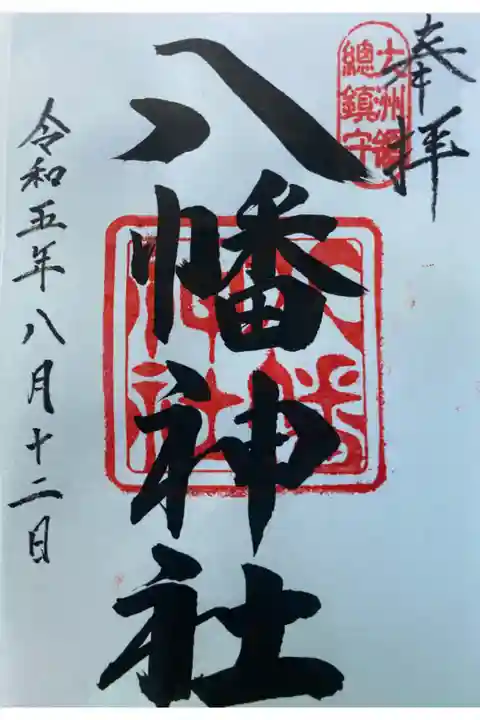 奉拝
大洲領
總鎮守
八幡神社
八幡
神社
令和五年八月十二日